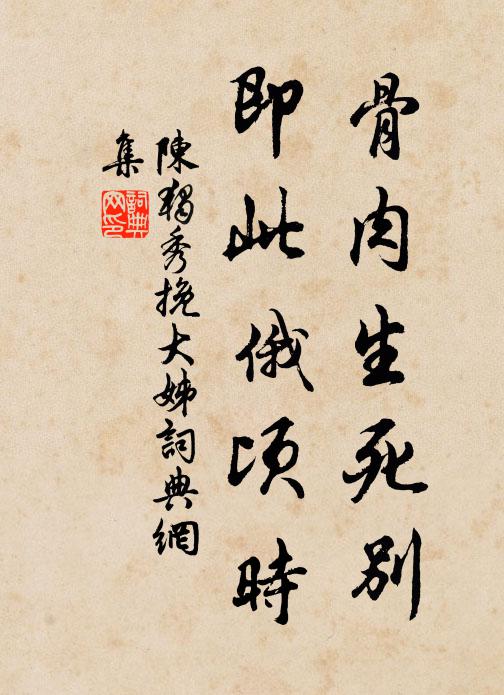 骨肉生死別
即此俄頃時
陳獨秀挽大姊詞典網
集
詞典
网印